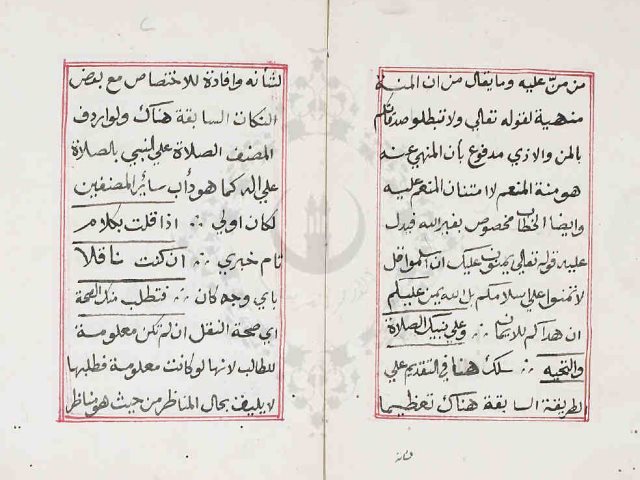 من منّ عليه وما يقال من ان المنة
منهية لقوله تعالي ولا تبطلوا صدقاتكم
بالمن والاذي مدفوع بأن المنهي عنه
هو منة المنعم لا امتنان المنعم عليه
وايضا الخطاب مخصوص بغير الله فيدل
عليه قوله تعالي يمنون عليك ان اسلموا قل
لا تمنوا علي اسلامكم بل الله يمن عليكم
ان هداكم للايمان ؞ وعلي نبيك الصلاة
والتحيه ؞ سلك هنا في التقديم علي
لطريقة السابقة هناك تعظيما
لشأنه وافادة للاختصاص مع بعض
النكات السابقة هناك ولو اردف
المصنف الصلاة علي النبي بالصلاة
علي اله كما هو دأب سائر المصنفين
لكان اولي ؞ اذا قلت بكلام
تام خبري ؞ ان كنت ناقلا
باي وجه كان ؞ فتطلب منك الصحة
اي صحة النقل ان لم تكن معلومة
للطالب لانها لو كانت معلومة فطلبها
لا يليق بحال المناظر من حيث هو مناظر